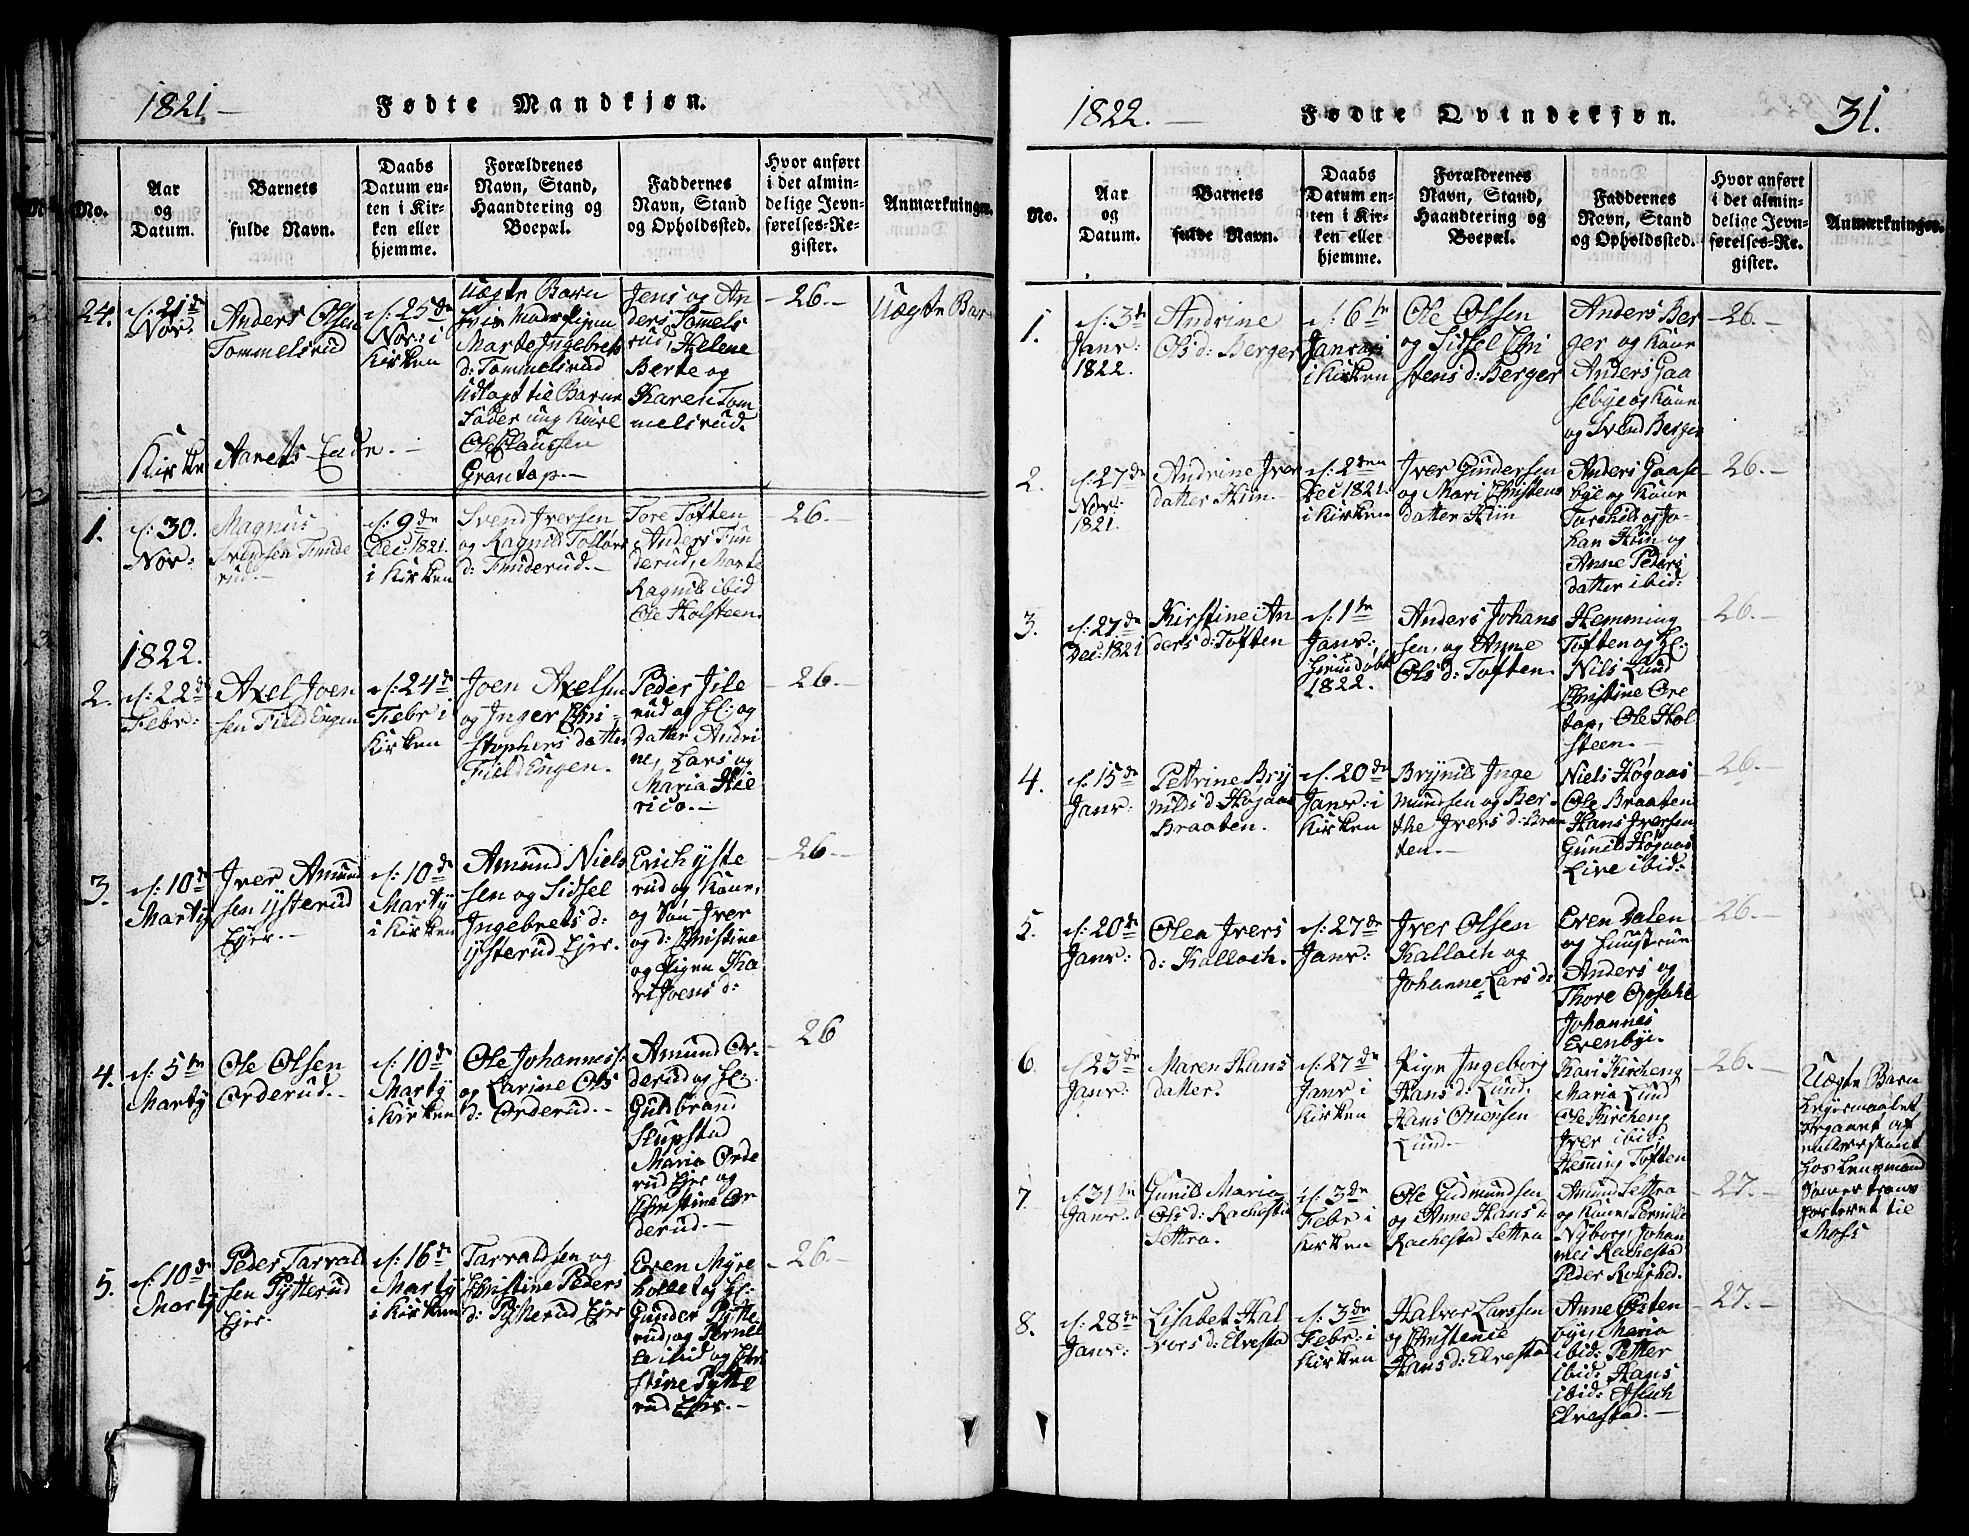 1821 – Fødte Mandkjøn.
No.
Aar
og
Datum.
Barnets
fulde Navn.
Daabs
Datum en-
ten i Kir-
ken eller
hjemme.
Forældrenes
Navn, Stand,
Haandtering og
Boepæl.
Faddernes
Navn, Stand
og Opholdssted.
Hvor anført
i det almin-
delige Jevn-
førelses-Re-
gister.
Anmærkninger.
24.
d: 21de
Nov:
Anders Olsen
Tommelsrud
d: 25de
Nov: i
Kirken
Uægte Barn
Marte Ingebrets
d: Tommelsrud
Udlagt til Barne
Fader ung Karl
Ole Clausen
Grantop.–
Jens og An
ders Tomels
rud, Helene
Berte og
Karen Tom
melsrud.
– 26 –
Uægte Barn
Kirke Aarets Ende. –
1.
d: 30.
Nov:
Magnus
Svendsen Funde
rud.–
d: 9de
Dec: 1821.
i Kirken
Svend Iversen
og Ragnild Tollovs
d: Funderud.–
Tore Toften
Anders Fun
derud, Marte
Ragnild ibid
Ole Holsteen.
– 26. –
1822.
2.
d: 22de
Febr:
Axel Joen
sen FieldEngen
d: 24de
Febr i
Kirken
Joen Axelsen
og Inger Chri-
stophers datter
FieldEngen.
Peder Jile
rud og H: og
Datter Andri
ne, Lars og
Maria Hie
rico.–
– 26. –
3.
d: 10de
Martij
Iver Amund
sen Ysterud
Ejer.–
d: 10de
Martij
i Kirken
Amund Niels
sen og Sidsel
Ingebrets d:
Ysterud Ejer.
Erich Yste
rud og Kone,
og Søn Iver
og d: Christine
og Pigen Ka
ri Joens d:
– 26. –
4.
d: 5te
Martij
Ole Olsen
Orderud.–
d: 10de
Martij
i Kirken
Ole Johanness:
og Karine Ols
d: Orderud.–
Amund Or-
derud og H:
Guldbrand
Slupstad
Maria Orde
rud Ejer og
Christine Or
derud.–
26
5.
d: 10de
Martij
Peder Tarvald
sen Pytterud
Ejer.
d: 16de
Martij
i Kirken
Tarvaldsen og
Christine Peders
d: Pytterud Ejer
Even Myre
hollet og H:
Gunder Pytte
rud, og Pernel
le ibid og Chri
stine Pytte
rud Ejer.–
– 26. –
1822. – Fødte Qvindekjøn. 31.
No.
Aar
og
Datum.
Barnets
fulde Navn.
Daabs
Datum en-
ten i Kir-
ken eller
hjemme.
Forældrenes
Navn, Stand,
Haandtering og
Boepæl.
Faddernes
Navn, Stand
og Opholdssted.
Hvor anført
i det almin-
delige Jevn-
førelses-Re-
gister.
Anmærkninger.
1.
d: 3de
Janr:
1822.
Andrine
Ols d: Berger
d: 6te
Januari
i Kirken
Ole Olsen
og Sidsel Chri
stens d: Berger
Anders Ber
ger og Kone
Anders Gaa
sebye og Kone
og Svend Berger
– 26. –
2.
d: 27de
Nov:
1821.
Andrine Iver
datter Hiin.
d: 2den
Dec 1821.
i Kirken
Iver Gundersen
og Mari Christens
datter Hiin
Anders Gaase
bye og Kone
Torkild og Jo-
han Hiin og
Anne Peders
datter ibid:
– 26. –
3.
d: 27de
Dec: 1821
Kirstine An
ders d: Toften
d: 1te
Janr:
1822.
Anders Johans
sen, og Anne
Ols d: Toften.
Hemming
Toften og H:
Nils Lund
Christine Ore
top, Ole Hol
steen.–
– 26. –
4.
d: 15de
Janr:
Petrine Bry
nilds d: Høgaas
Braaten.
d: 20de
Janr: i
Kirken
Brynild Inge
mundsen og Ber-
the Ivers d: Braa
ten.–
Niels Høgaas
Ole Braaten
Hans Iversen
Gunild Høgaas
Live ibid:
– 26. –
5.
d: 20de
Janr:
Olea Ivers
d: Kallach.
d: 27de
Janr:
Iver Olsen
Kallach og
Johanne Lars d:
Even Dalen
og Huustrue
Anders og
Thore Opsahl
Johannes
Evenbye.
– 26. –
6
d: 23de
Janr:
Maren Hans
datter.
d: 27de
Janr i
Kirken
Pige Ingeborg
Hans d: Lund,
Hans Onensen
Lund.–
Kari Kircheng
Maria Lund
Ole Kircheng
Iver ibid:
Hemming Toften
– 26. –
Uægte Barn
Leyermaalet
begaaet af
hos Lensmand
til
Moss
7
d: 31te
Janr:
Gunild Maria
Ols d: Rachestad
Settra.
d: 3de
Febr i
Kirken
Ole Gudmundsen
og Anne Hans d:
Rachestad Settra
Amund Settra
og Kone, Pernille
Nyborg, Johan
nes Rachestad
Peder Rolighed.
– 27. –
8.
d: 28de
Janr:
Lisabet Hal
vors d: Elvestad
d: 3de
Febr: i
Kirken
Halvor Larssen
og Christenie
Hans d: Elvestad
Anne Østen
bye, Maria
ibid: Petter
ibid: Hans
ibid: Aslach
Elvestad.–
– 27. –